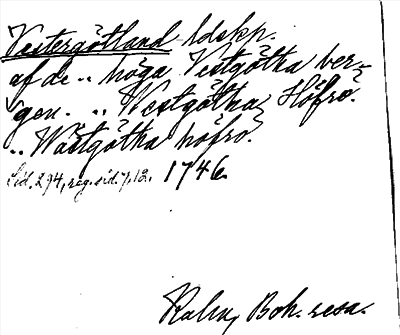 Vestergötland ldskp.
af de .. höga Vestgötha ber-
gen. .. Westgötha Höfrö.
.. Wästgötha höfrö.
Sid. 294, reg. sid. 7, 12. 1746.
Kalm, Boh. resa.